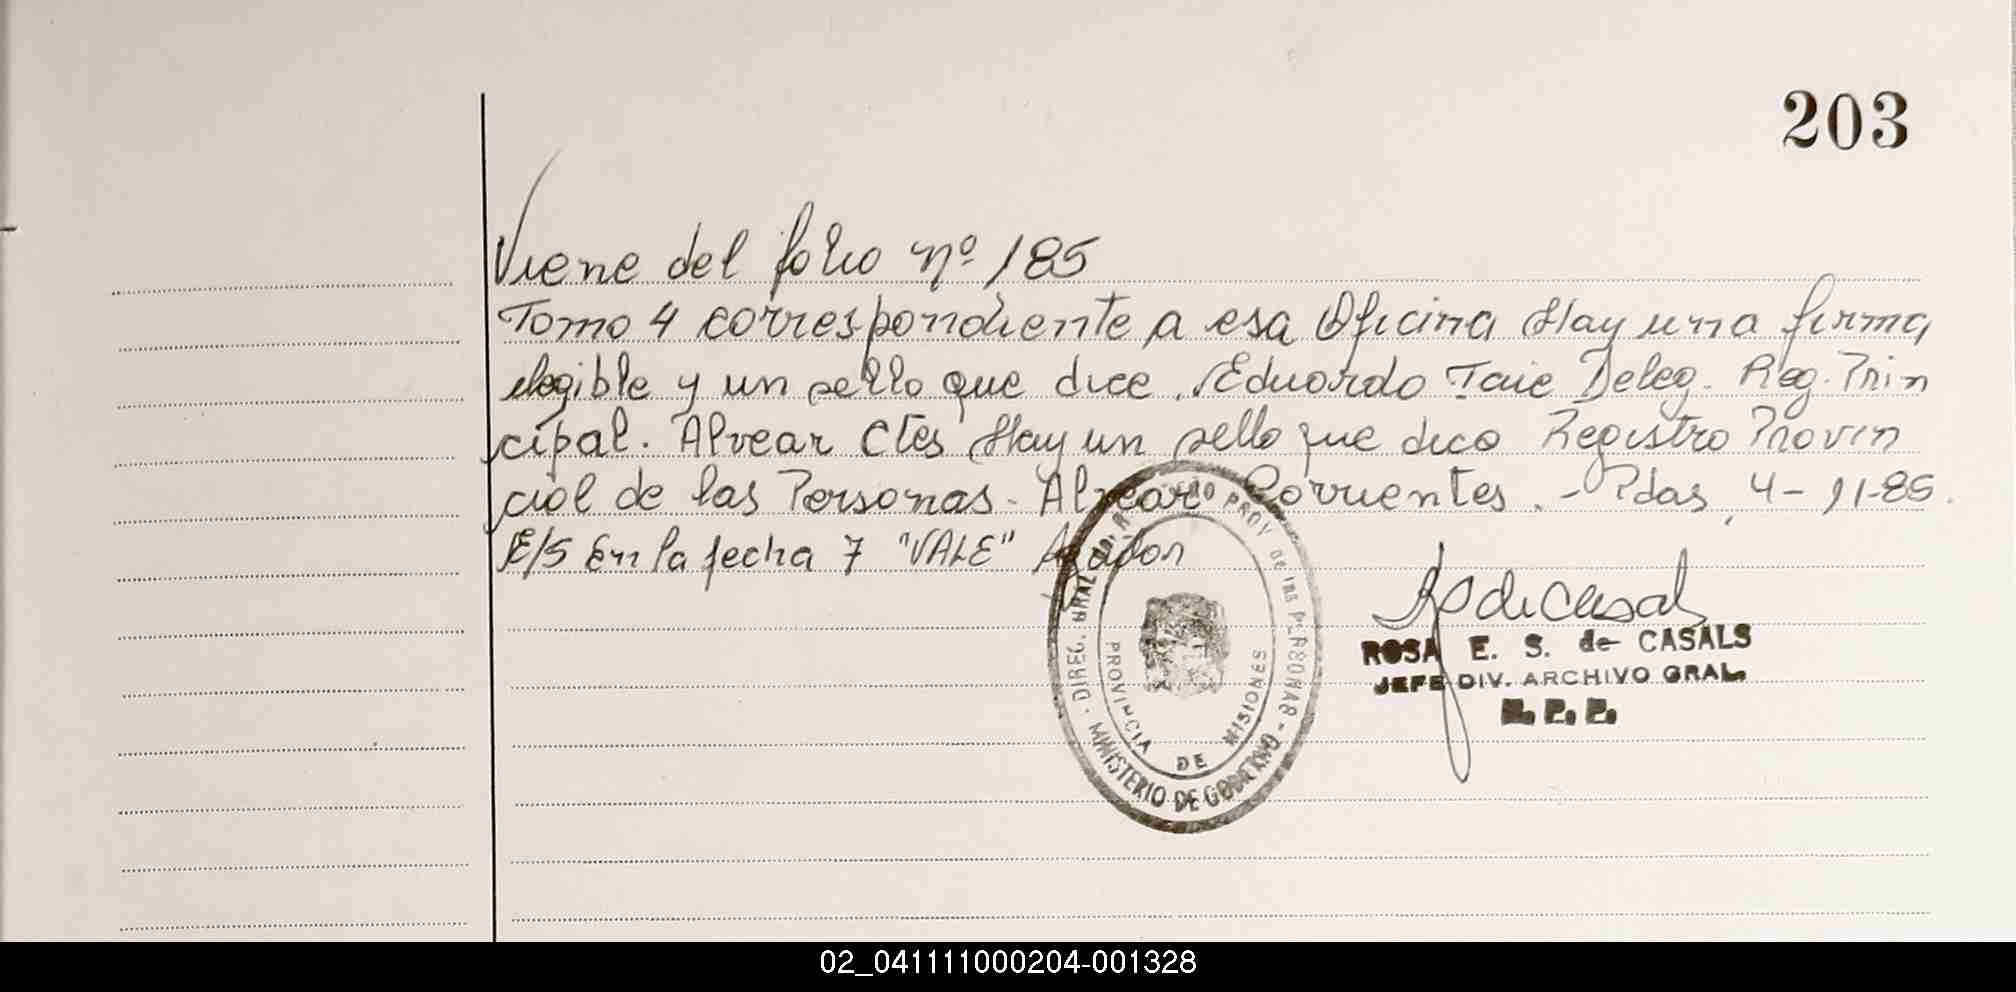 203
Viene del folio nº 185
Tomo 4 correspondiente a esa Oficina Hay una firma
ilegible y un sello que dice. Eduardo Taie Deleg. Reg. Prin
cipal. Alvear Ctes Hay un sello que dice Registro Provin
cial de las Personas. Alvear Corrientes. - Pdas, 4-11-85.
E/S En la fecha 7 "VALE"
ROSA E. S. de CASALS
JEFE DIV. ARCHIVO GRAL.
PROV DE LAS PERSONAS - MINISTERIO DE GOBIERNO - DIREC. GRAL
PROVINCIA DE MISIONES
02_041111000204-001328